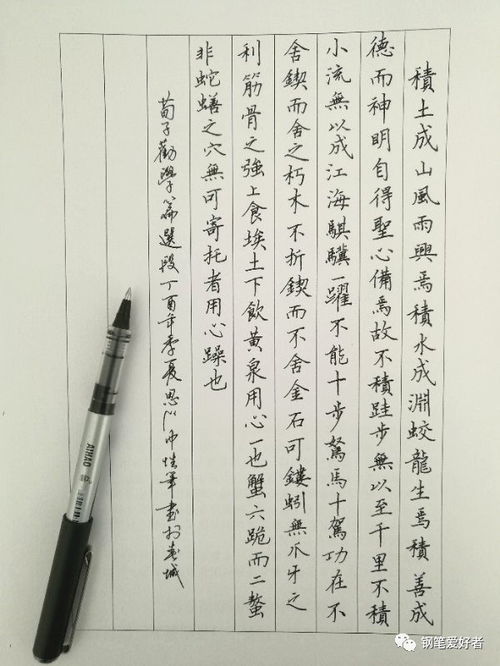 積土成山風雨興焉積水成淵蛟龍生焉積善成
德而神明自得聖心備焉故不積跬步無以至千里不積
小流無以成江海騏驥一躍不能十步駑馬十駕功在不
舍鍥而舍之朽木不折鍥而不舍金石可鏤蚓無爪牙之
利筋骨之強上食埃土下飲黃泉用心一也蟹六跪而二螯
非蛇蟮之穴無可寄托者用心躁也
荀子勸學篇選段丁酉年季夏思以中性筆書於春城
AIHAO
钢笔爱好者